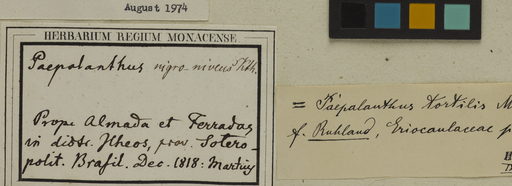 August 1974
HERBARIUM REGIUM MONACENSE
Paepalanthus nigro niveus Kth.
Prope Almada et Ferradas
in distr. Ilheos, prov. Sotero-
polit. Brasil. Dec. 1818: Martius
= Paepalanthus tortilis M
f. Ruhland, Eriocaulaceae p
H